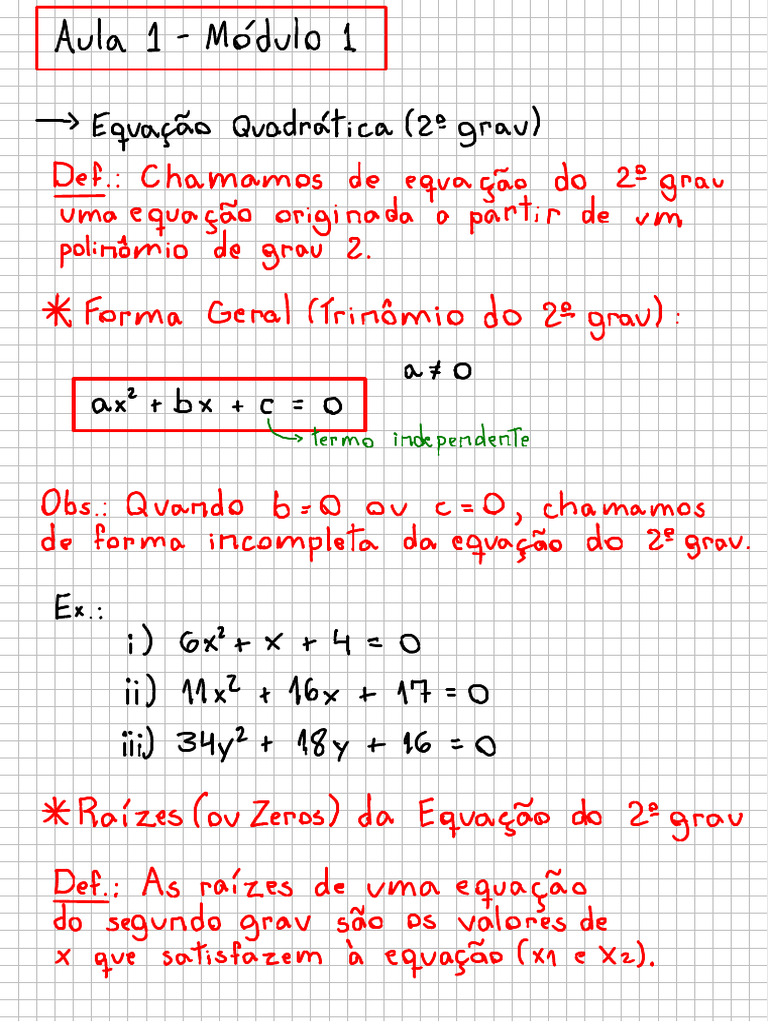 Aula 1 - Módulo 1
→ Equação Quadrática (2º grau)
Def.: Chamamos de equação do 2º grau
uma equação originada a partir de um
polinômio de grau 2.
* Forma Geral (Trinômio do 2º grau):
a ≠ 0
ax² + bx + c = 0
termo independente
Obs.: Quando b = 0 ou c = 0, chamamos
de forma incompleta da equação do 2º grau.
Ex.:
i) 6x² + x + 4 = 0
ii) 11x² + 16x + 17 = 0
iii) 34y² + 18y + 16 = 0
* Raízes (ou Zeros) da Equação do 2º grau
Def.: As raízes de uma equação
do segundo grau são os valores de
x que satisfazem à equação (x1 e x2).